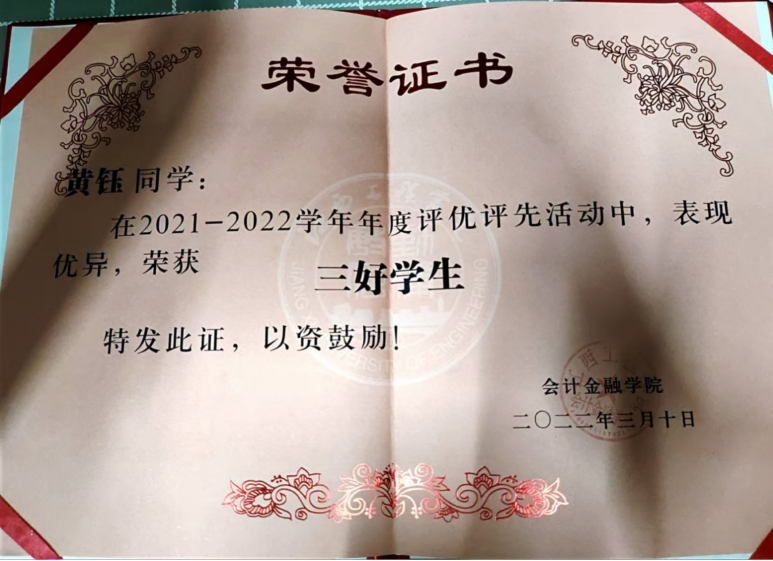 荣誉证书
黄钰同学：
在2021-2022学年年度评优评先活动中，表现
优异，荣获
三好学生
特发此证，以资鼓励！
会计金融学院
二〇二二年三月十日